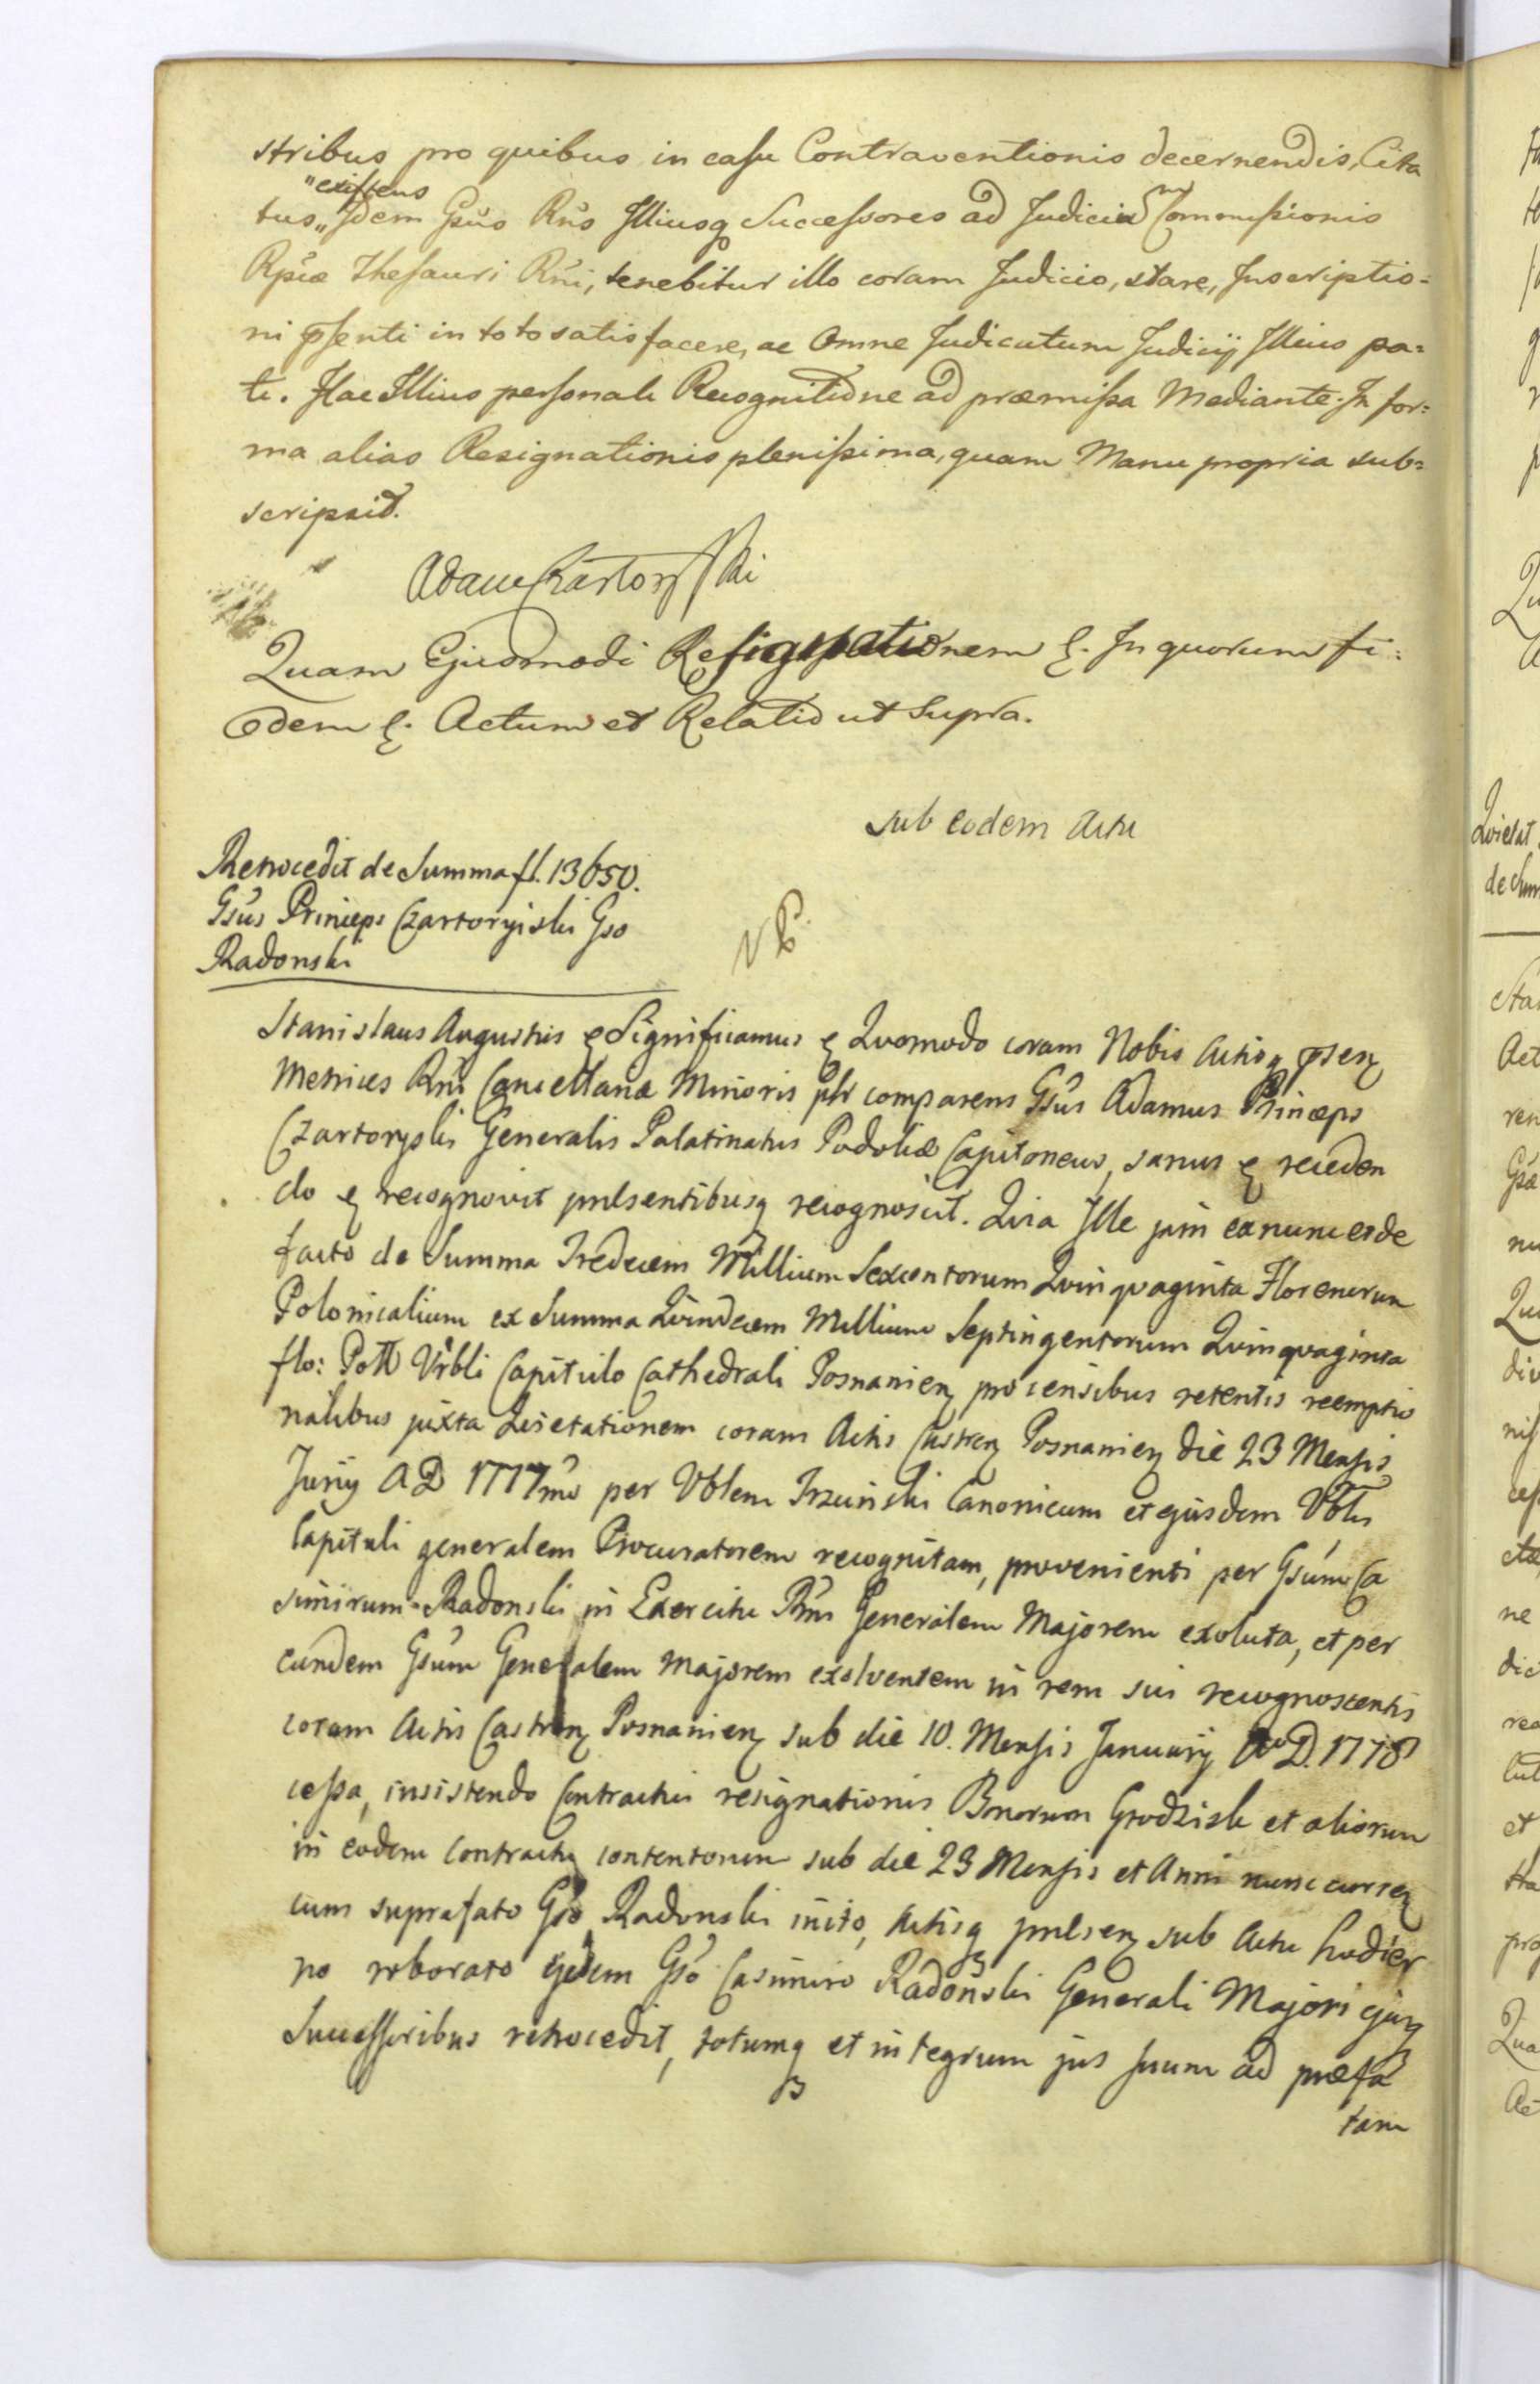 stribus pro quibus in casu Contraventionis decernendis, Cita
"existens
tus,, Idem Gsus Rñs Illiusq Successores ad Judicia Commissionis
Rpcæ Thesauri Rñi, tenebitur illo coram Judicio, stare, Inscriptio=
ni psenti in toto satisfacere, ac Omne Judicatum Judicij Illius pa=
ti. Hac Illius personali Recognitione ad præmissa Mediante. In for=
ma alias Resignationis plenissima, quam Manu propria sub=
scripsit.
Adam Czartoryski
Quam Ejusmodi Resignationem &. In quorum fi:
dem &. Actum et Relatio ut Supra.
sub eodem Actu
Retrocedit de Summa fl. 13650.
Gsus Princeps Czartoryiski Gso
Radonski
Stanislaus Augustus & Significamus & Quomodo coram Nobis Actisq psen
Metrices Rñi Cancellariæ Minoris plr comparens Gsus Adamus Princeps
Czartoryski Generalis Palatinatus Podoliæ Capitoneus, sanus & receden
do & recognovit pnlsentibusq recognoscit. Quia Ille jam ex nunc et de
facto de Summa Tredecem Millium Sexcentorum Quinquaginta Florenorum
Polonicalium ex Summa Quindecem Millium Septingentorum Quinquaginta
flo: Poll Vrbli Capitulo Cathedrali Posnanien pro censibus retentis reemptio
nalibus juxta Quietationem coram Actis Castren Posnanien die 23 Mensis
Junij A D 1777mo per Vblem Trzcinski Canonicum et ejusdem Vblis
Capituli generalem Procuratorem recognitam, provenienti per Gsum Ca
simirum Radonski in Exercitu Rñi Generalem Majorem exoluta, et per
eundem Gsum Generalem Majorem exolventem in rem sui recognoscentis
coram Actis Castren Posnanien sub die 10. Mensis January A D. 1778
cessa, insistendo Contractui resignationis Bonorum Grodzisk et aliorum
in eodem Contractu contentorum sub die 23 Mensis et Anni nunc curren
cum suprafato Gso Radonski inito, Actisq pnlsen sub Actu hodier
no roborato eidem Gso Casimiro Radoński Generali Majori ejusq
Successoribus retrocedit, totumq et integrum jus suum ad præfa
tam